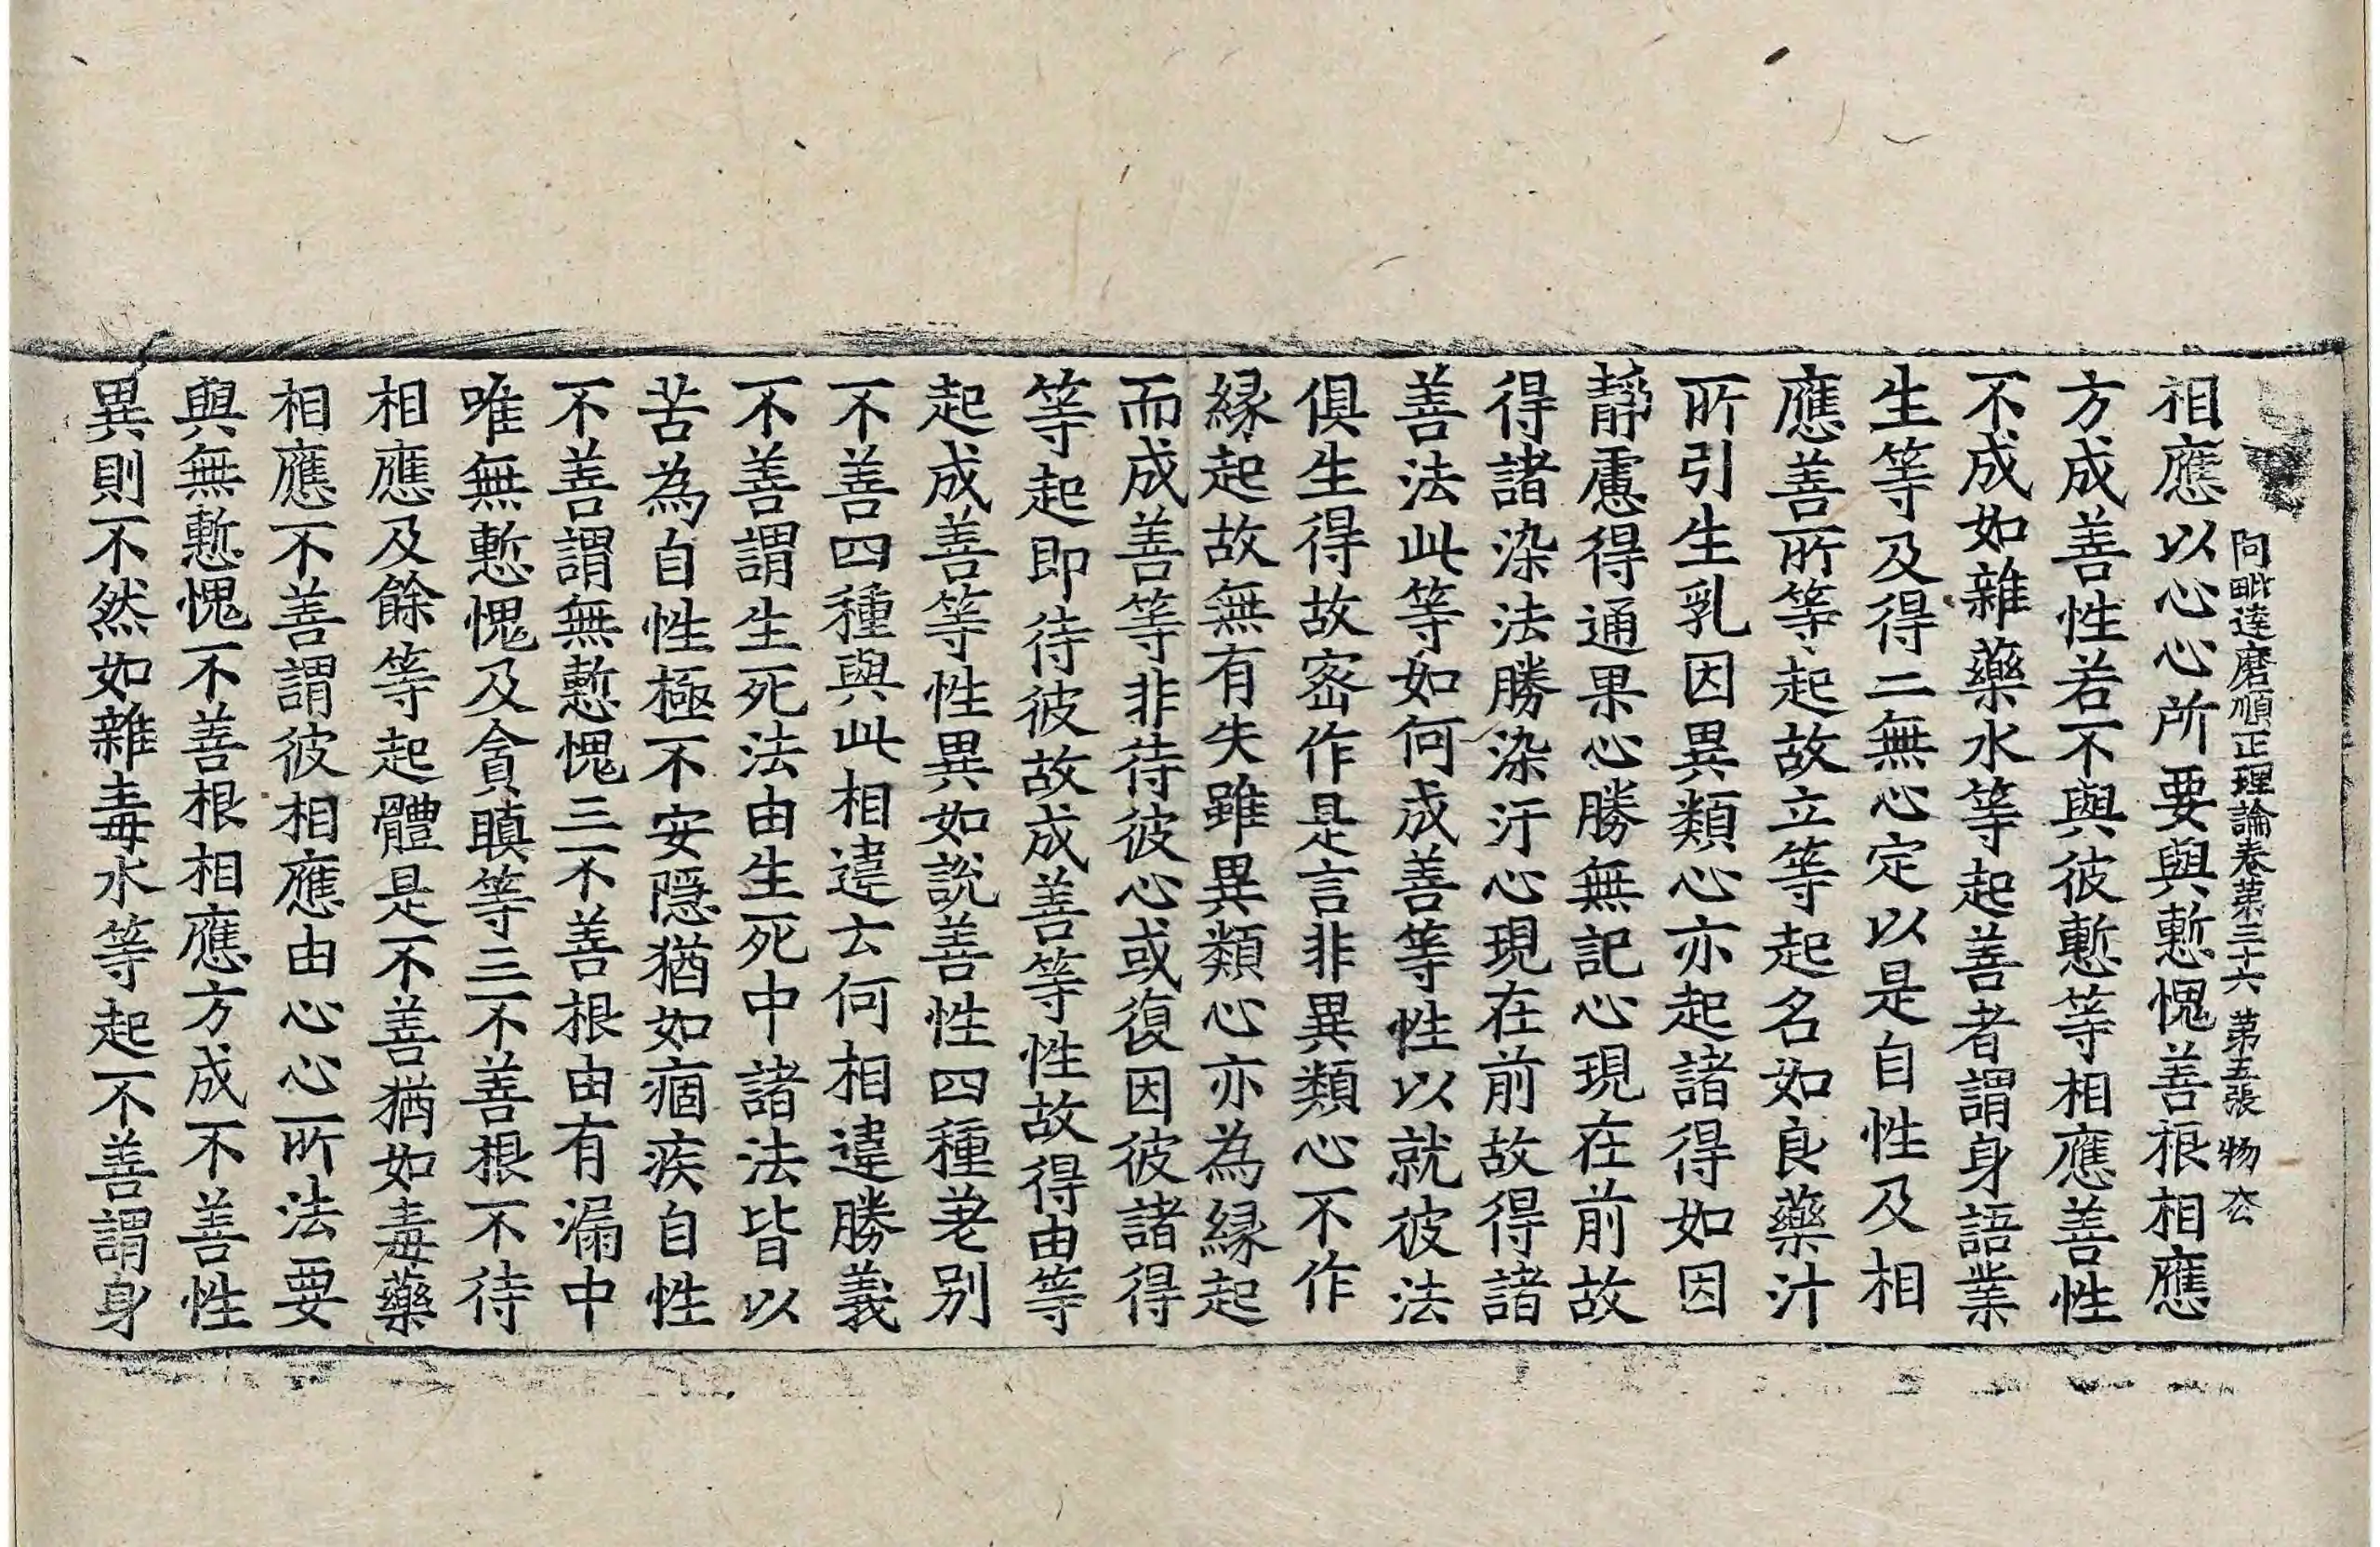 阿毗達磨順正理論卷第三十六 第五張 物
相應以心心所要與慙愧善根相應
方成善性若不與彼慙等相應善性
不成如雜藥水等起善者謂身語業
生等及得二無心定以是自性及相
應善所等起故立等起名如良藥汁
所引生乳因異類心亦起諸得如因
靜慮得通果心勝無記心現在前故
得諸染法勝染汙心現在前故得諸
善法此等如何成善等性以就彼法
俱生得故密作是言非異類心不作
緣起故無有失雖異類心亦為緣起
而成善等非待彼心或復因彼諸得
等起即待彼故成善等性故得由等
起成善等性異如說善性四種差別
不善四種與此相違云何相違勝義
不善謂生死法由生死中諸法皆以
苦為自性極不安隱猶如痼疾自性
不善謂無慙愧三不善根由有漏中
唯無慙愧及貪瞋等三不善根不待
相應及餘等起體是不善猶如毒藥
相應不善謂彼相應由心心所法要
與無慙愧不善根相應方成不善性
異則不然如雜毒水等起不善謂身